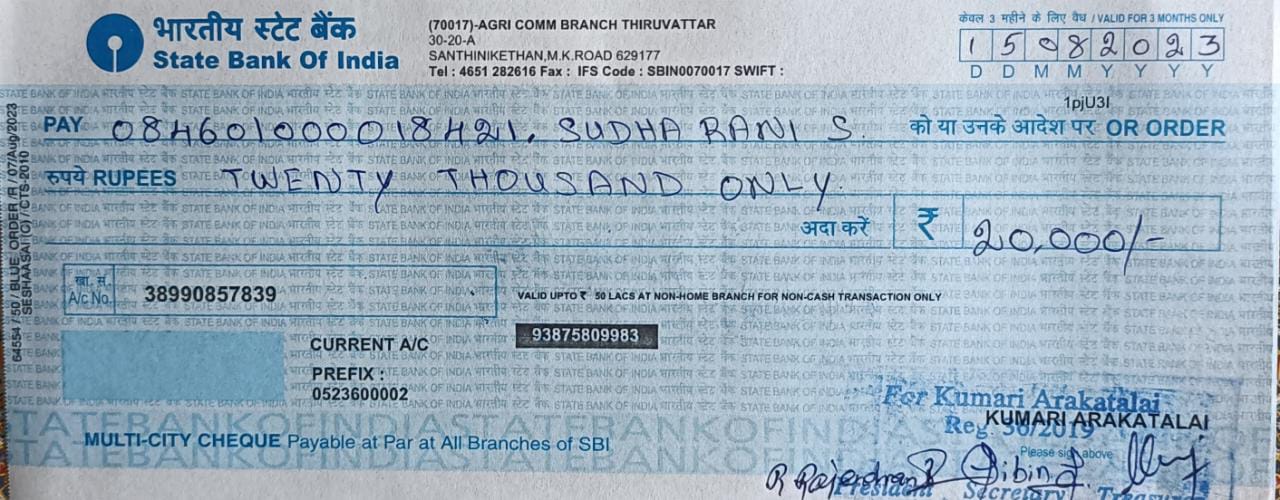 भारतीय स्टेट बैंक
State Bank Of India
(70017)-AGRI COMM BRANCH THIRUVATTAR
30-20-A
SANTHINIKETHAN,M.K.ROAD 629177
Tel : 4651 282616 Fax : IFS Code : SBIN0070017 SWIFT :
केवल 3 महीने के लिए वैध / VALID FOR 3 MONTHS ONLY
1 5 0 8 2 0 2 3
D D M M Y Y Y Y
1pjU3I
PAY 084601000018421, SUDHA RANI S को या उनके आदेश पर OR ORDER
रुपये RUPEES TWENTY THOUSAND ONLY.
अदा करें ₹ 20,000/-
खा. सं. A/c No. 38990857839
VALID UPTO ₹ 50 LACS AT NON-HOME BRANCH FOR NON-CASH TRANSACTION ONLY
93875809983
CURRENT A/C
PREFIX :
0523600002
MULTI-CITY CHEQUE Payable at Par at All Branches of SBI
For Kumari Arakatalai
KUMARI ARAKATALAI
Reg. 56/2019
Please sign above
R Rajendran Dibin
President Secretary Treasurer
64554 / 50 / BLUE ORDER /R / 07/Aug/2023
SESHAASAI (C) / CTS-2010
STATE BANK OF INDIA भारतीय स्टेट बैंक